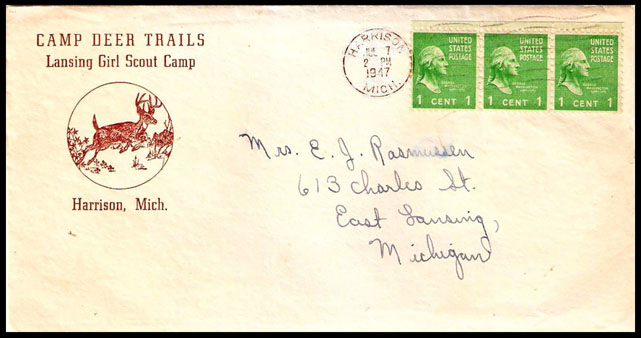 CAMP DEER TRAILS
Lansing Girl Scout Camp
Harrison, Mich.
HARRISON
JUL 7
2 PM
1947
MICH.
UNITED STATES POSTAGE
1 CENT 1
UNITED STATES POSTAGE
1 CENT 1
UNITED STATES POSTAGE
1 CENT 1
Mrs. E. J. Rasmussen
613 Charles St.
East Lansing,
Michigan